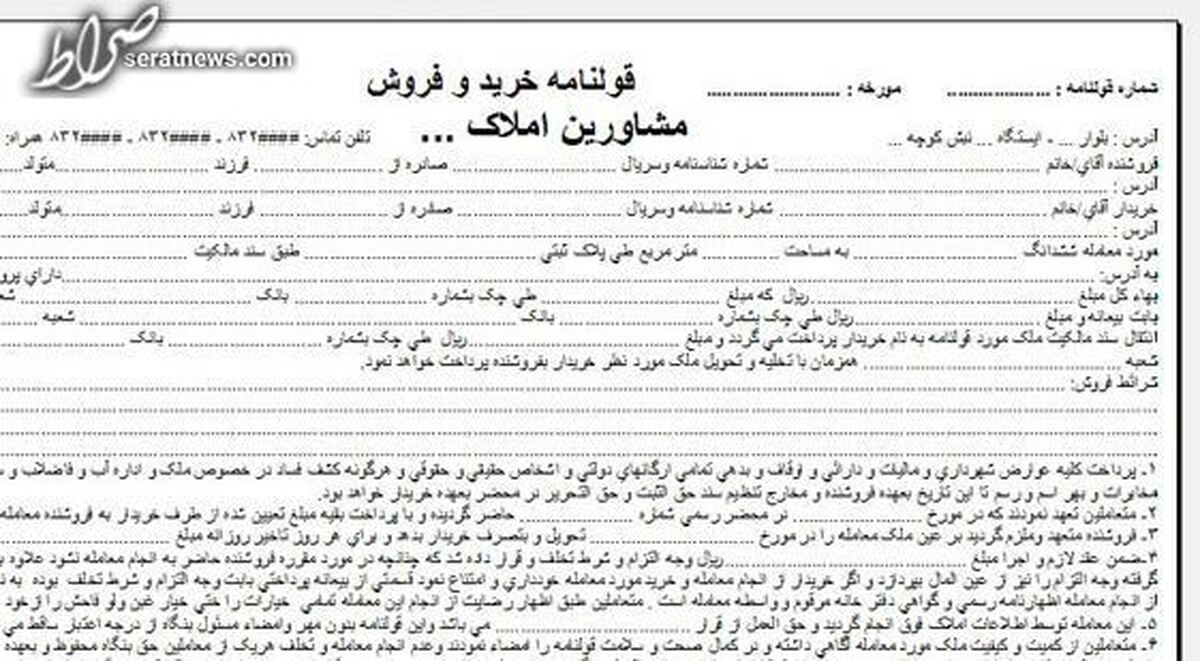 صراط
seratnews.com
قولنامه خرید و فروش
شماره قولنامه : .................... مورخه : ..........................
مشاورین املاک ...
آدرس : بلوار ... - ایستگاه ... نبش کوچه ...
تلفن تماس: ####۸۳۲ - ####۸۳۲ - ####۸۳۲ همراه:
فروشنده آقای/خانم .......... شماره شناسنامه وسریال .......... صادره از .......... فرزند .......... متولد..........
آدرس : ..........
خریدار آقای/خانم .......... شماره شناسنامه وسریال .......... صادره از .......... فرزند .......... متولد..........
آدرس : ..........
مورد معامله ششدانگ .......... به مساحت .......... متر مربع طی پلاک ثبتی .......... طبق سند مالکیت ..........
به آدرس: .......... دارای پرو
بهاء کل مبلغ .......... ریال که مبلغ .......... طی چک بشماره .......... بانک .......... شع
بابت بیعانه و مبلغ .......... ریال طی چک بشماره .......... بانک .......... شعبه ..........
انتقال سند مالکیت ملک مورد قولنامه به نام خریدار پرداخت می گردد و مبلغ .......... ریال طی چک بشماره .......... بانک ..........
شعبه .......... همزمان با تخلیه و تحویل ملک مورد نظر خریدار بفروشنده پرداخت خواهد نمود.
شرائط فروش: ..........
۱- پرداخت کلیه عوارض شهرداری و مالیات و دارائی و اوقاف و بدهی تمامی ارگانهای دولتی و اشخاص حقیقی و حقوقی و هرگونه کشف فساد در خصوص ملک و اداره آب و فاضلاب و
مخابرات و بهر اسم و رسم تا این تاریخ بعهده فروشنده و مخارج تنظیم سند حق الثبت و حق التحریر در محضر بعهده خریدار خواهد بود.
۲- متعاملین تعهد نمودند که در مورخ .......... در محضر رسمی شماره .......... حاضر گردیده و با پرداخت بقیه مبلغ تعیین شده از طرف خریدار به فروشنده معامله
۳- فروشنده متعهد وملزم گردید بر عین ملک معامله را در مورخ .......... تحویل و بتصرف خریدار بدهد و برای هر روز تاخیر روزانه مبلغ ..........
۴-ضمن عقد لازم و اجرا مبلغ .......... ریال وجه التزام و شرط تخلف و قرار داده شد که چنانچه در مورد مقرره فروشنده حاضر به انجام معامله نشود علاوه
گرفته وجه التزام را نیز از عین المال بپردازد و اگر خریدار از انجام معامله و خرید مورد معامله خودداری و امتناع نمود قسمتی از بیعانه پرداختی بابت وجه التزام و شرط تخلف بوده به
از انجام معامله اظهارنامه رسمی و گواهی دفتر خانه مرقوم و واسطه معامله است . متعاملین طبق اظهار رضایت از انجام این معامله تمامی خیارات را حتی خیار غبن ولو فاحش را ازخود
۵- این معامله توسط اطلاعات املاک فوق انجام گردید و حق العمل از قرار .......... می باشد واین قولنامه بدون مهر وامضاء مسئول بنگاه از درجه اعتبار ساقط می
۶- متعاملین از کمیت و کیفیت ملک مورد معامله آگاهی داشته و در کمال صحت و سلامت قولنامه را امضاء نمودند وعدم انجام معامله و تخلف هریک از معاملین حق بنگاه محفوظ و بعهده